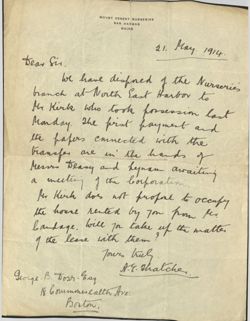 MOUNT DESERT NURSERIES
BAR HARBOR
MAINE
21. May, 1914.
Dear Sir.
We have disposed of the Nurseries
branch at North East Harbor to
Mr Kirk who took possession last
Monday. The first payment and
the papers connected with the
transfer are in the hands of
Messrs Deasy and Lynam awaiting
a meeting of the Corporation
Mr Kirk does not propose to occupy
the house rented by you from Mr
Candage. Will you take up the matter
of the lease with them,
Yours truly
A. E. Thatcher
George B. Dorr. Esq
18 Commonwealth Ave.
Boston.